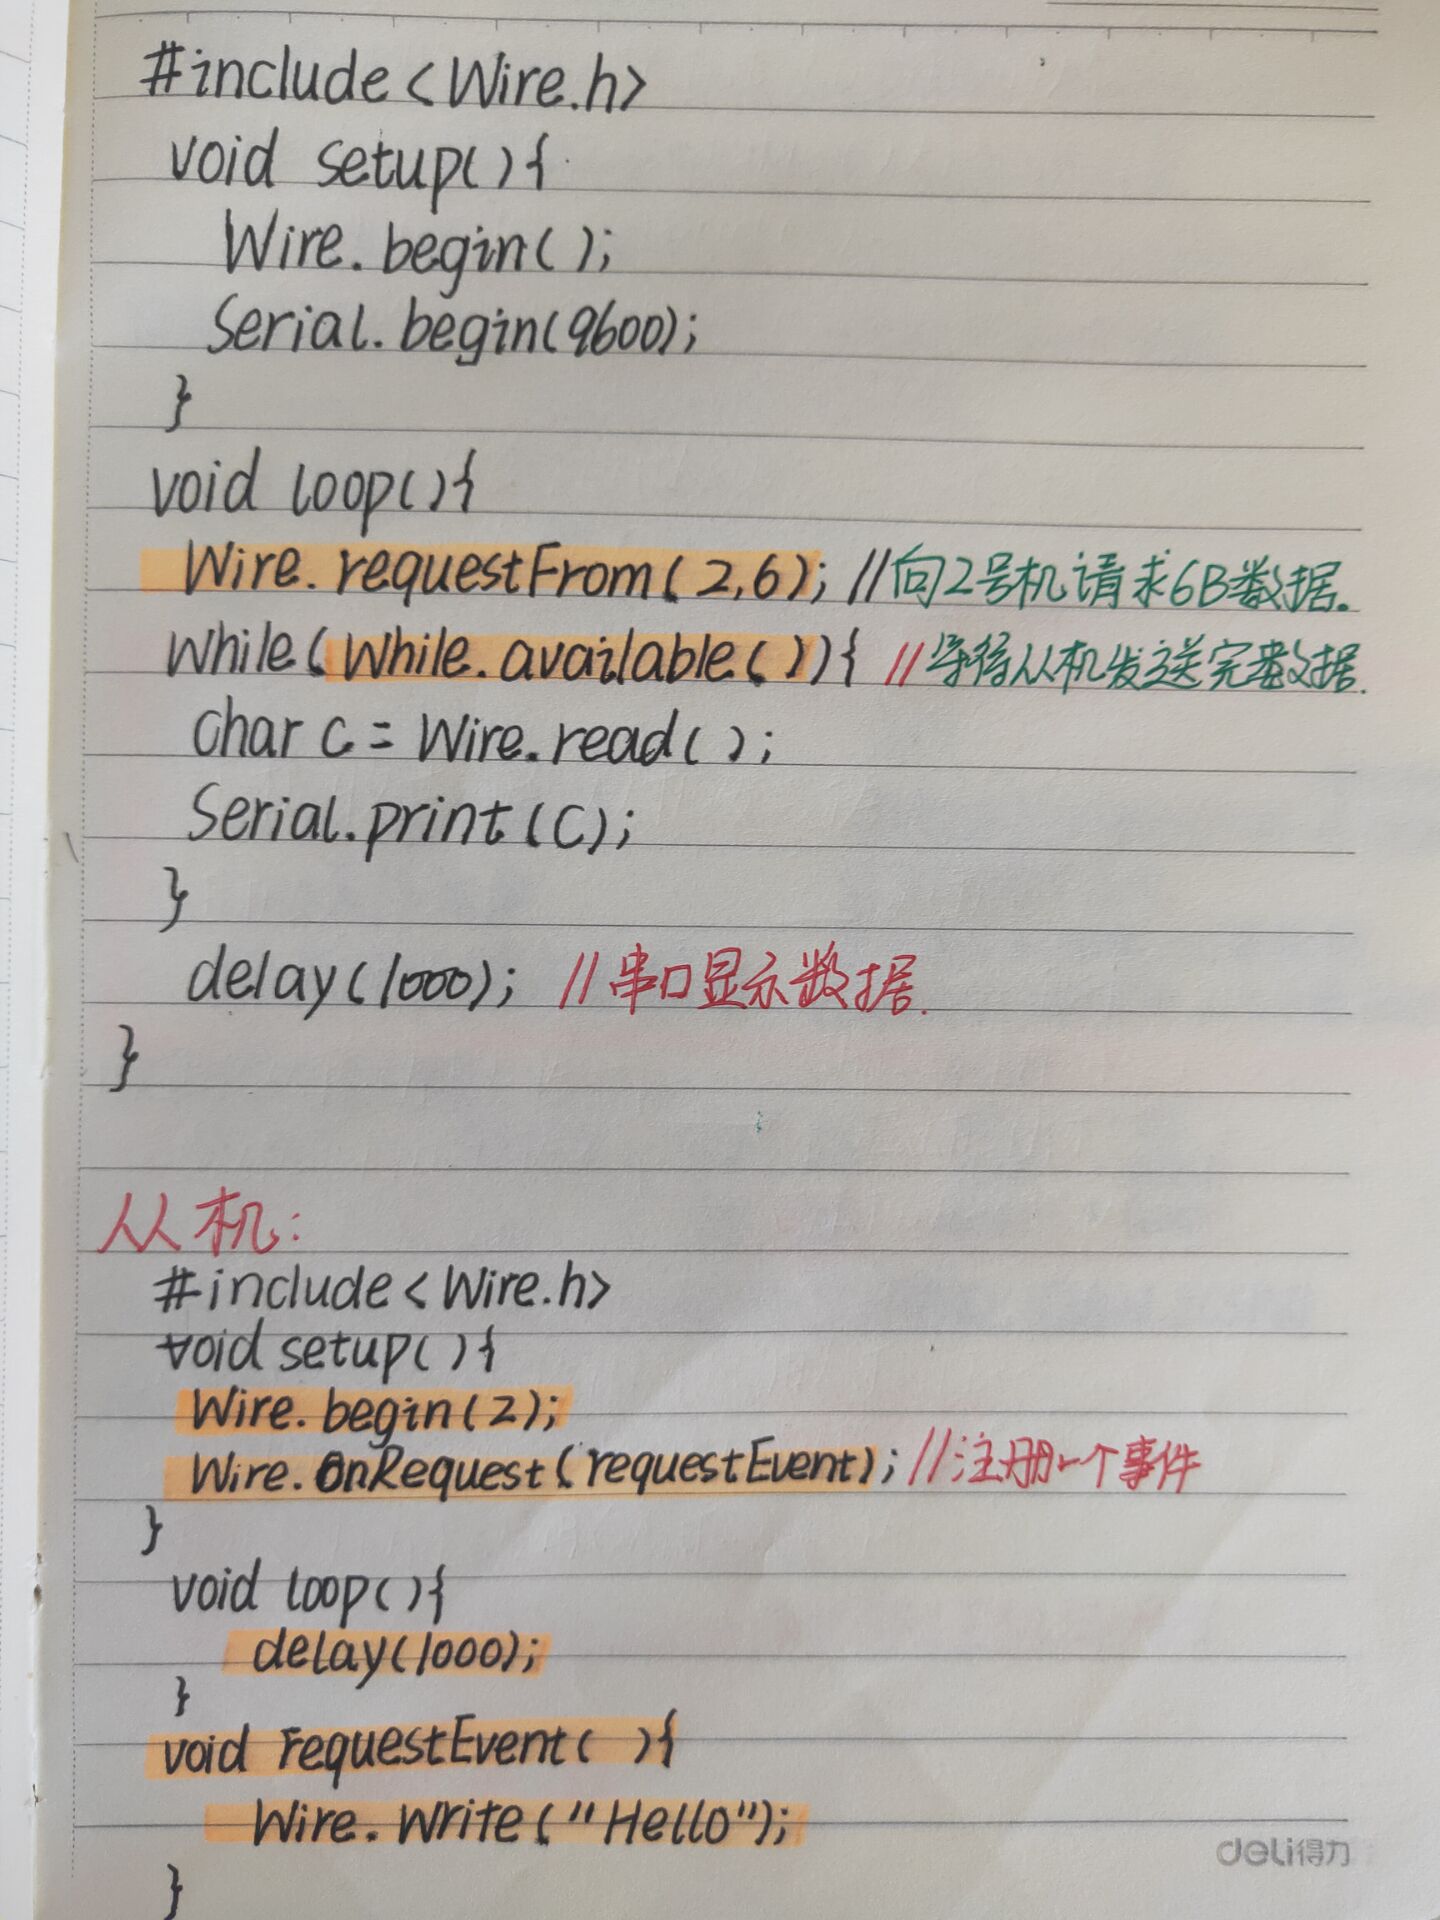 #include<Wire.h>
void setup(){
Wire.begin();
Serial.begin(9600);
}
void loop(){
Wire.requestFrom(2,6); //向2号机请求6B数据.
while(While.available()){ //等待从机发送完毕数据.
char c = Wire.read();
Serial.print(C);
}
delay(1000); //串口显示数据.
}
从机:
#include<Wire.h>
void setup(){
Wire.begin(2);
Wire.OnRequest(requestEvent); //注册一个事件
}
void loop(){
delay(1000);
}
void requestEvent( ){
Wire.Write("Hello");
}
deli得力